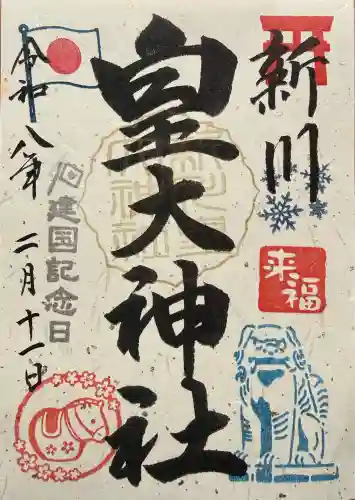 新川
来福
皇大神社
建国記念日
令和八年二月十一日